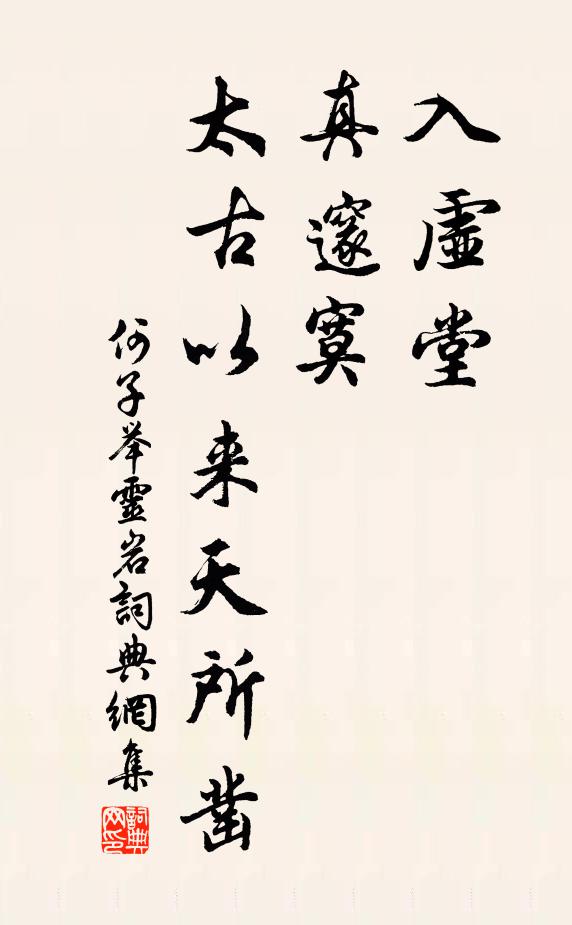 入虛堂
真邃寞
太古以来天所凿
何子举靈岩詞典網集
詞典
网印